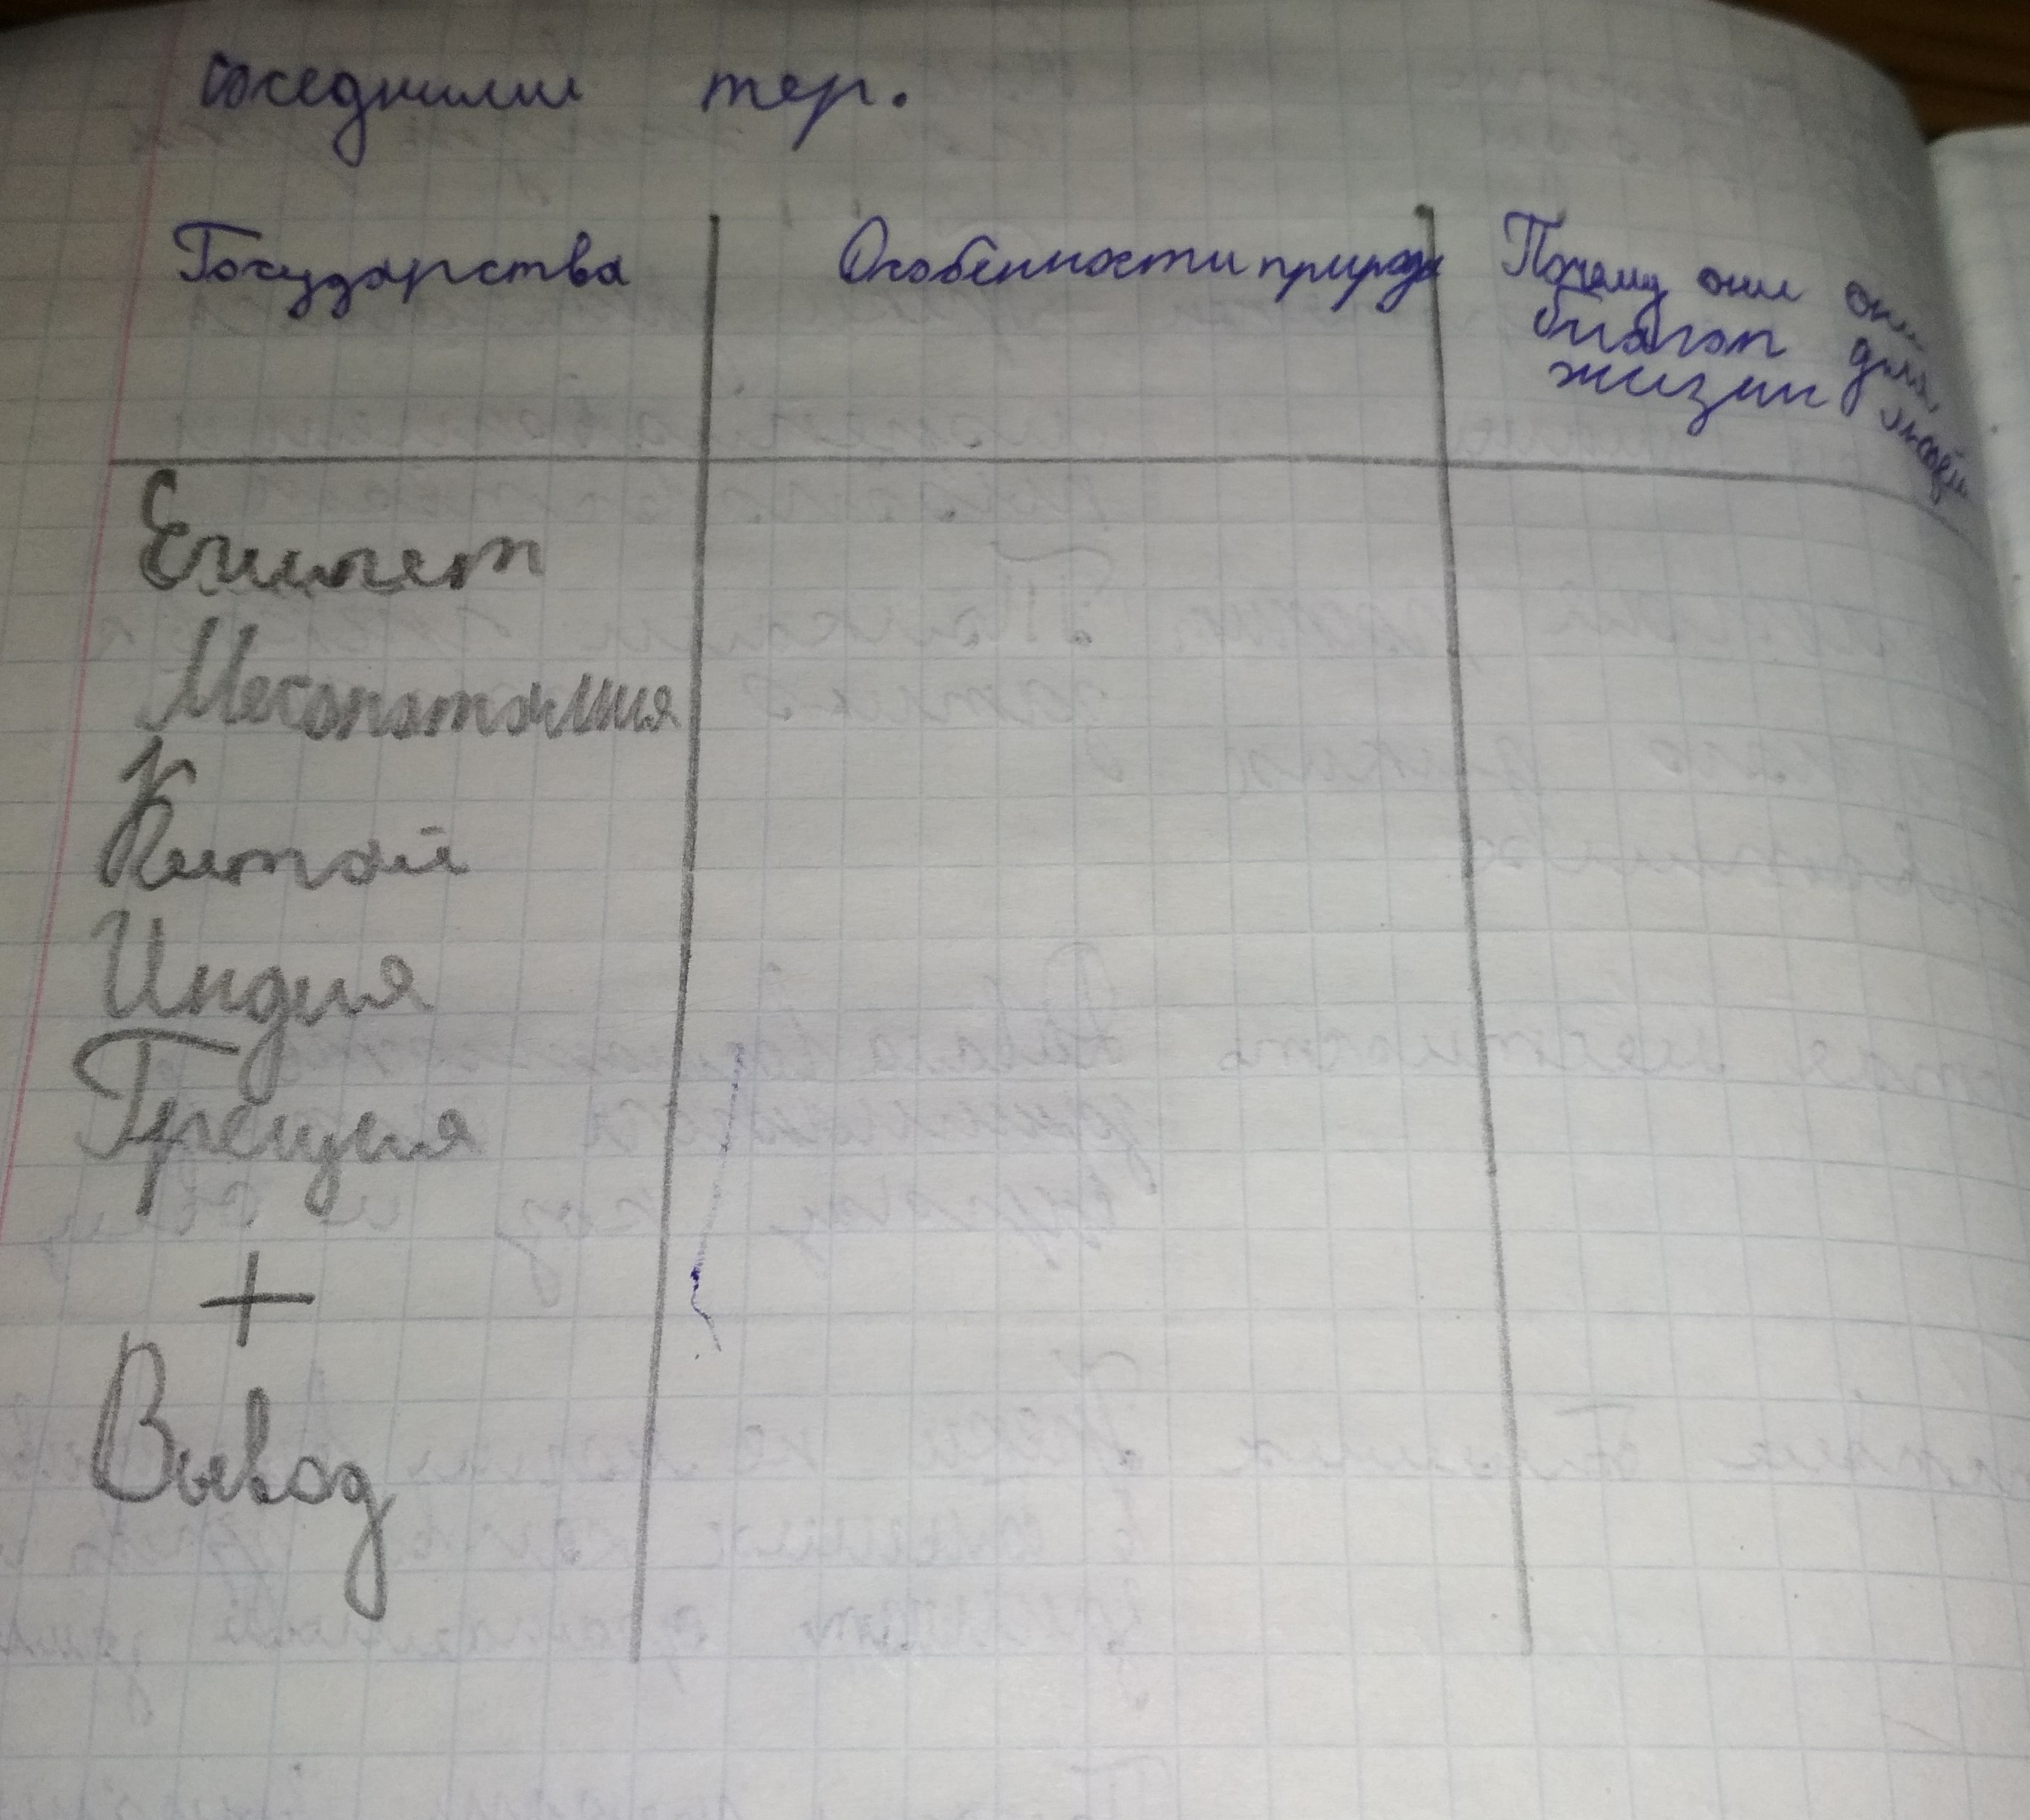 соседними тер.
Государства Особенности природы Почему они они
благоп для
жизни людей
Египет
Месопотамия
К
Китай
Индия
Греция
+
Вывод